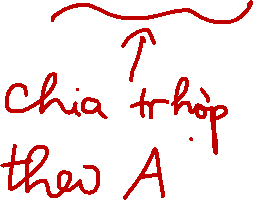 chia trhợp
theo A